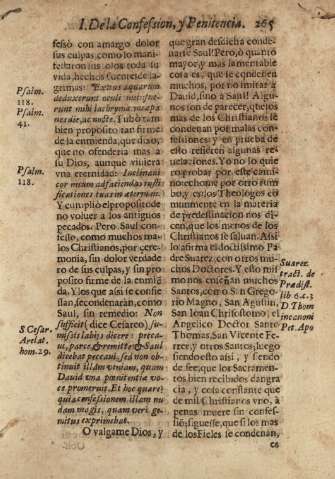 I. De la Confession, y Penitencia. 265
fessò con amargo dolor
sus culpas, como lo mani-
festaron sus ojos toda su
vida, hechos fuentes de la-
grimas: Exitus aquarum
deduxerunt oculi mei: fue-
runt mihi lacrymæ meæ pa-
nes die, ac nocte. Tuvo tam-
bien proposito tan firme
de la enmienda, que dixo,
que no ofenderia mas à
su Dios, aunque viviera
vna eternidad: Inclinavi
cor meum ad faciendas iusti-
ficationes tuas in æternum.
Y cumpliò el proposito de
no volver a los antiguos
pecados. Pero Saul con-
fessò, como muchos ma-
los Christianos, por cere-
monia, sin dolor verdade
ro de sus culpas, y sin pro-
posito firme de la enmiē-
da. Y los que assi se confie-
ssan, se condenaràn, como
Saul, sin remedio: Non
sufficit (dice Cesareo) su-
missis labijs dicere: pecca-
vi, parce, & remitte: & Saul
dicebat peccavi, sed non ob-
tinuit illam veniam, quam
David vna pœnitentiæ vo-
ce promeruit. Et hoc quare?
quia confessionem illam nu-
dam magis, quam veri ge-
mitus exprimebat.
O valgame Dios, y
Psalm.
118.
Psalm.
41.
Psalm.
118.
S. Cesar.
Arelat.
hom. 29.
que gran desdicha conde-
narse Saul! Pero, ò quanto
mayor, y mas lamentable
cosa es, que se condenen
muchos, por no imitar à
David, sino à Saul! Algu-
nos son de parecer, que los
mas de los Christianos se
condenan por malas con-
fessiones; y en prueba de
esto refieren algunas re-
velaciones. Yo no lo quie
ro probar por este cami-
no: echome por otro rum
bo, y es: los Theologos co
munmente en la materia
de predestinacion nos di-
cen, que los menos de los
Christianos se salvan. Assi
lo afirma el doctissimo Pa
dre Suarez, con otros mu-
chos Doctores. Y esto mis
mo nos enseñan muchos
Santos, como S. n Grego-
rio Magno, San Agustin,
San Ioan Chrisostomo, el
Angelico Doctor Santo
Thomas, San Vicente Fe-
rrer, y otros Santos, luego
siendo esto assi, y siendo
de fee, que los Sacramen-
tos, bien recibidos dan gra
cia, y cosa constante que
de mil Christianos vno, à
penas muere sin confes-
siō, siguesse, que si los mas
de los Fieles se condenan,
es
Suarez
tract. de
Prædist.
lib 6. c. 3
D. Thom
in canoni
Pet. Apo